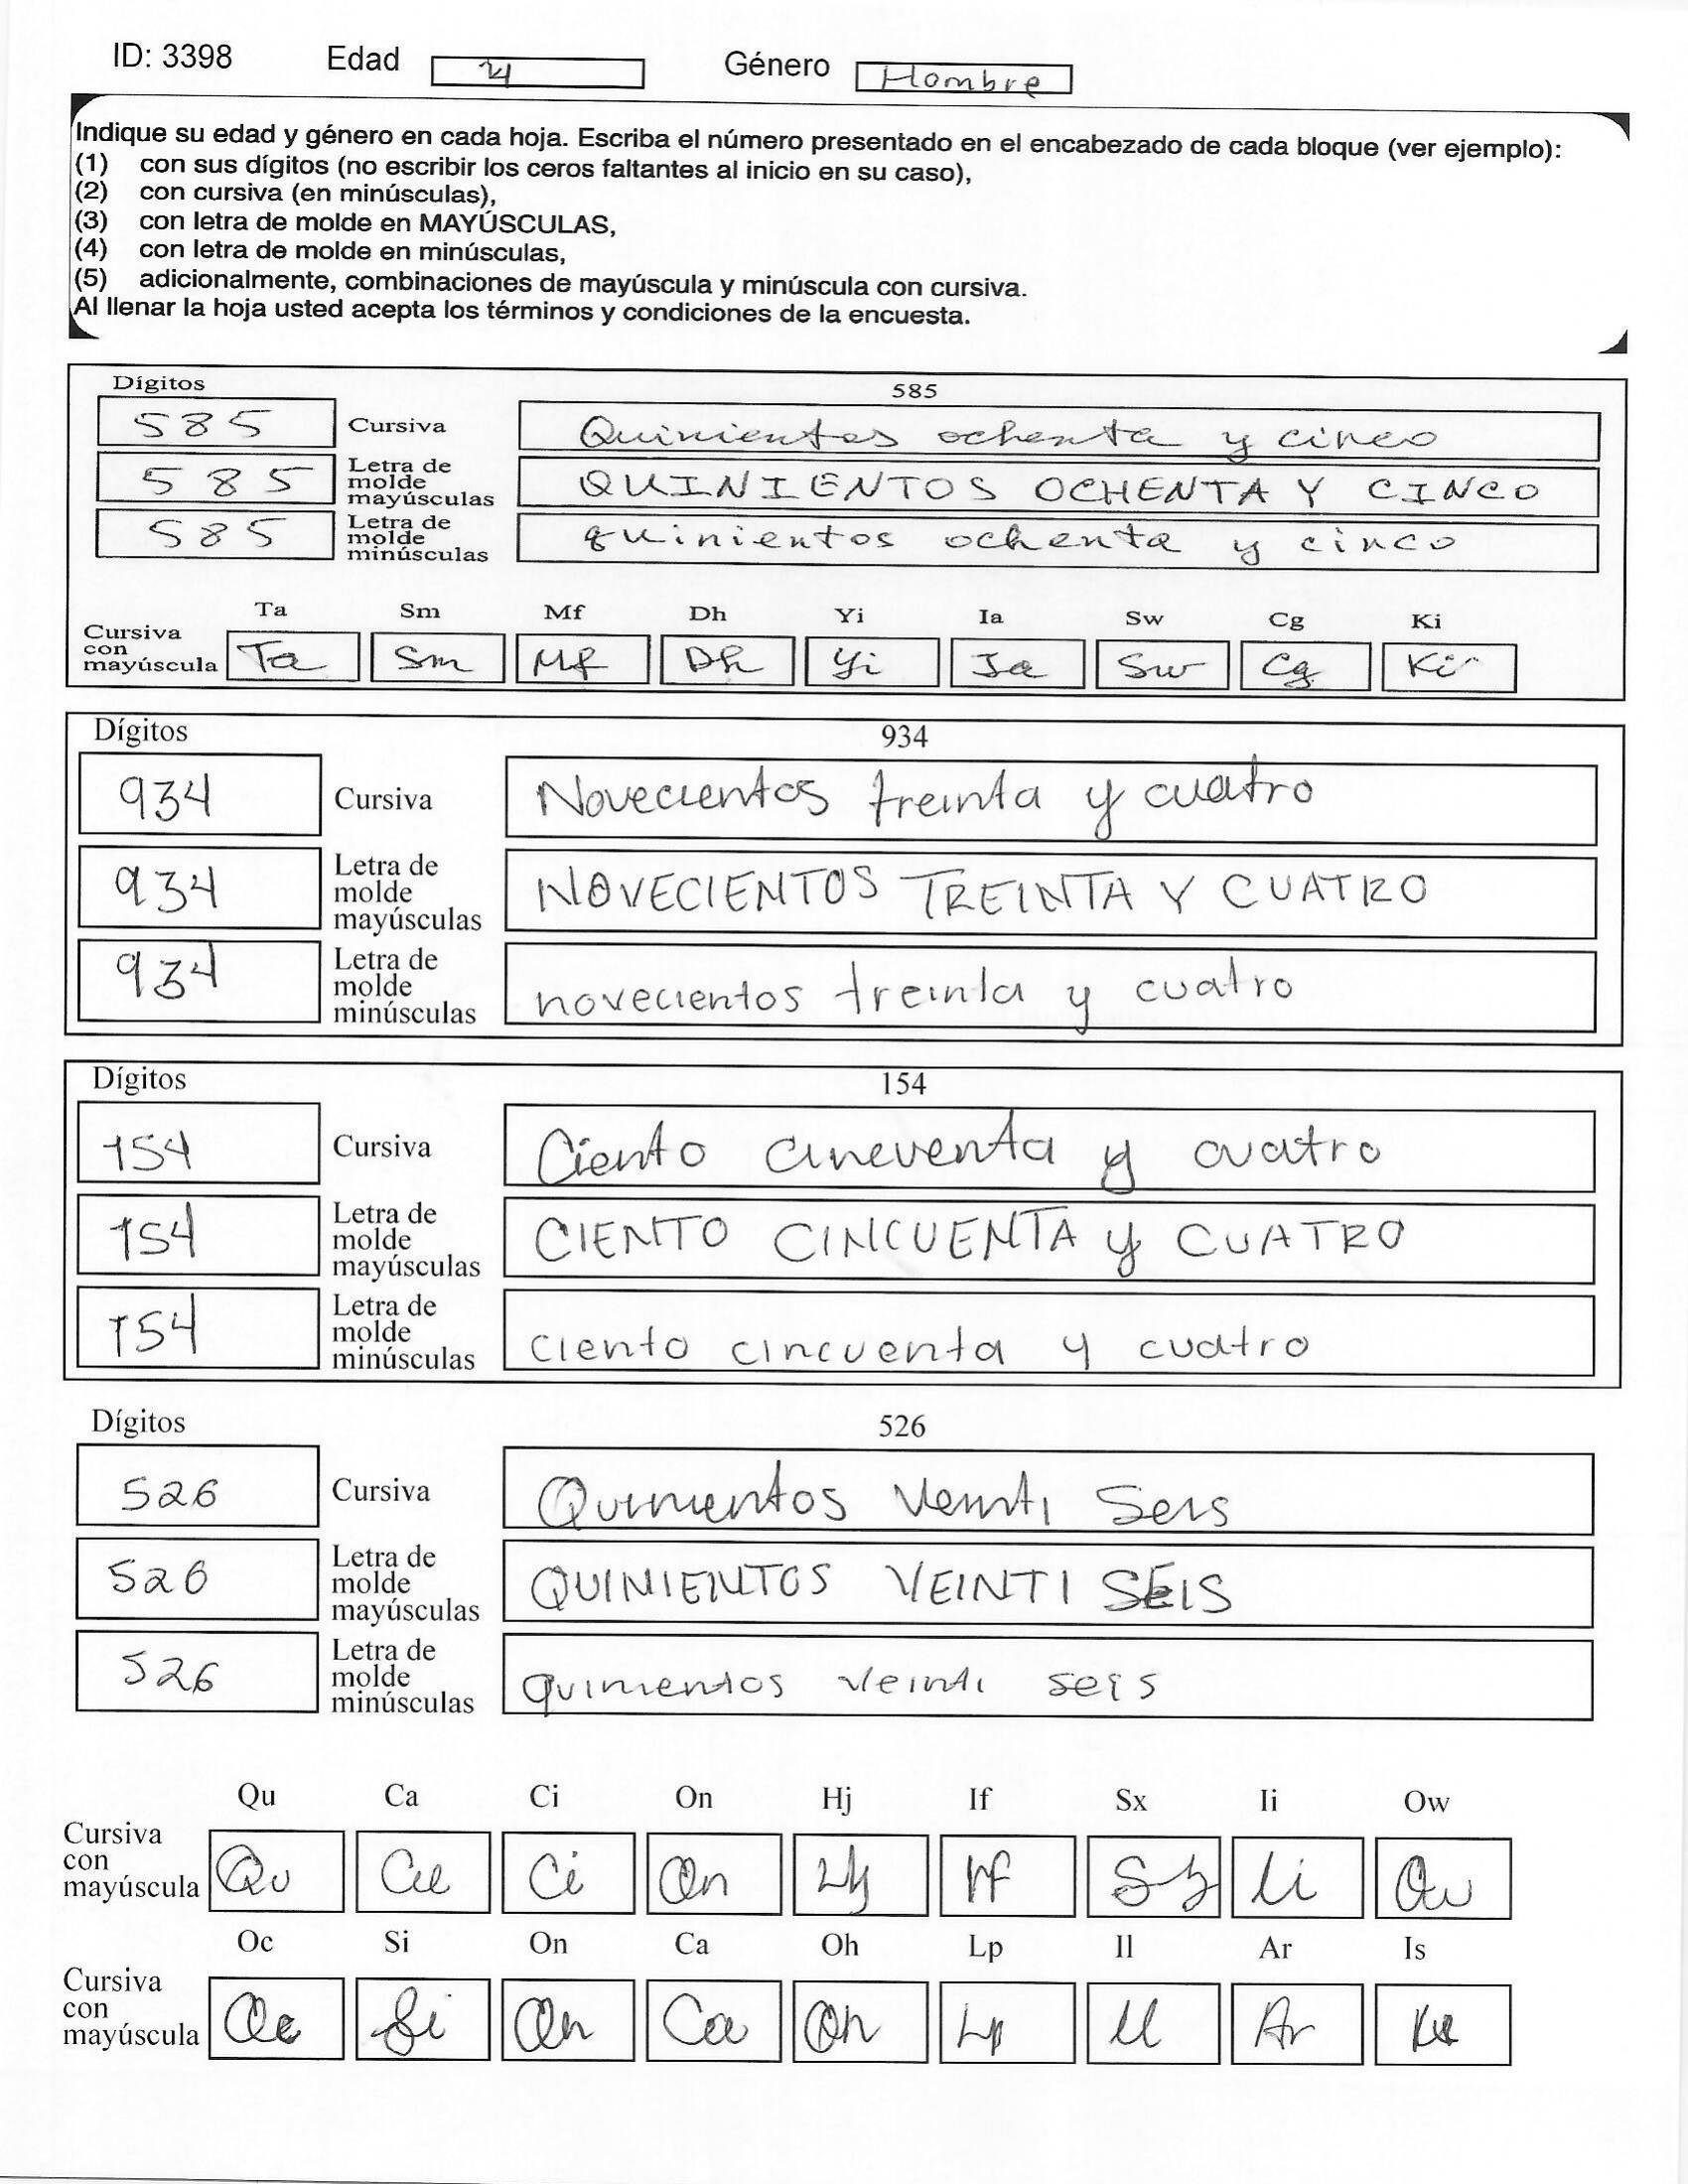 ID: 3398 Edad Género Hombre
Indique su edad y género en cada hoja. Escriba el número presentado en el encabezado de cada bloque (ver ejemplo):
(1) con sus dígitos (no escribir los ceros faltantes al inicio en su caso),
(2) con cursiva (en minúsculas),
(3) con letra de molde en MAYÚSCULAS,
(4) con letra de molde en minúsculas,
(5) adicionalmente, combinaciones de mayúscula y minúscula con cursiva.
Al llenar la hoja usted acepta los términos y condiciones de la encuesta.
Dígitos 585
585 Cursiva Quinientos ochenta y cinco
585 Letra de molde mayúsculas QUINIENTOS OCHENTA Y CINCO
585 Letra de molde minúsculas quinientos ochenta y cinco
Ta Sm Mf Dh Yi Ia Sw Cg Ki
Cursiva con mayúscula Ta Sm Mf Dh Yi Ia Sw Cg Ki
Dígitos 934
934 Cursiva Novecientos treinta y cuatro
934 Letra de molde mayúsculas NOVECIENTOS TREINTA Y CUATRO
934 Letra de molde minúsculas novecientos treinta y cuatro
Dígitos 154
154 Cursiva Ciento cincuenta y cuatro
154 Letra de molde mayúsculas CIENTO CINCUENTA y CUATRO
154 Letra de molde minúsculas ciento cincuenta y cuatro
Dígitos 526
526 Cursiva Quinientos Veinti Seis
526 Letra de molde mayúsculas QUINIENTOS VEINTI SEIS
526 Letra de molde minúsculas quinientos veinti seis
Qu Ca Ci On Hj If Sx Ii Ow
Cursiva con mayúscula Qu Ca Ci On Hj If Ii Ow
Oc Si On Ca Oh Lp Il Ar Is
Cursiva con mayúscula Oc Si On Ca Oh Lp Il Ar